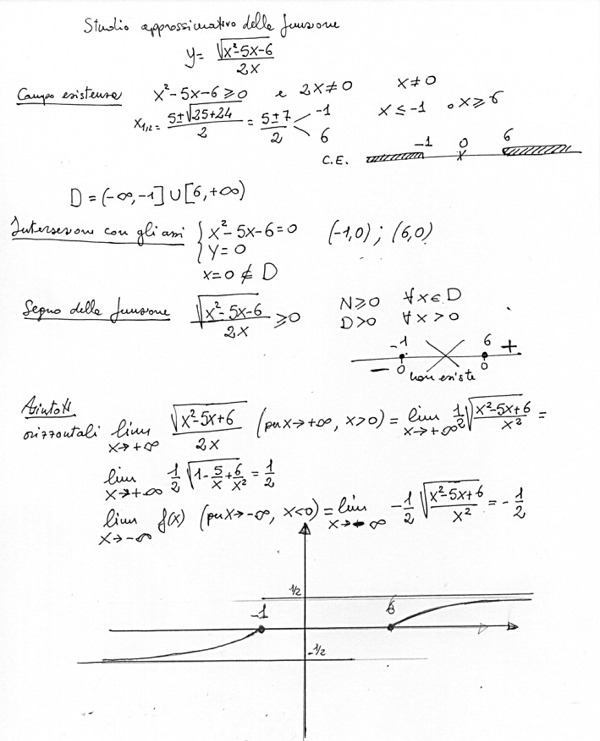 Studio approssimativo della funzione
y = √(x²-5x-6) / 2x
Campo esistenza x²-5x-6 ⩾ 0 e 2x ≠ 0 x ≠ 0
x₁/₂ = (5±√(25+24)) / 2 = (5±7) / 2 < -1 6 x ≤ -1 o x ⩾ 6
C.E. -1 0 6
D = (-∞,-1] ∪ [6,+∞)
Intersezione con gli assi { x²-5x-6 = 0 (-1,0) ; (6,0)
y = 0
x = 0 ∉ D
Segno della funzione √(x²-5x-6) / 2x ⩾ 0 N ⩾ 0 ∀x ∈ D
D > 0 ∀x > 0
-1 6 +
- 0 0
non esiste
Asintoti
orizzontali lim x→+∞ √(x²-5x+6) / 2x (per x→+∞, x>0) = lim x→+∞ 1/2 √((x²-5x+6) / x²) =
lim x→+∞ 1/2 √(1 - 5/x + 6/x²) = 1/2
lim x→-∞ f(x) (per x→-∞, x<0) = lim x→-∞ -1/2 √((x²-5x+6) / x²) = -1/2
1/2
-1 6
-1/2